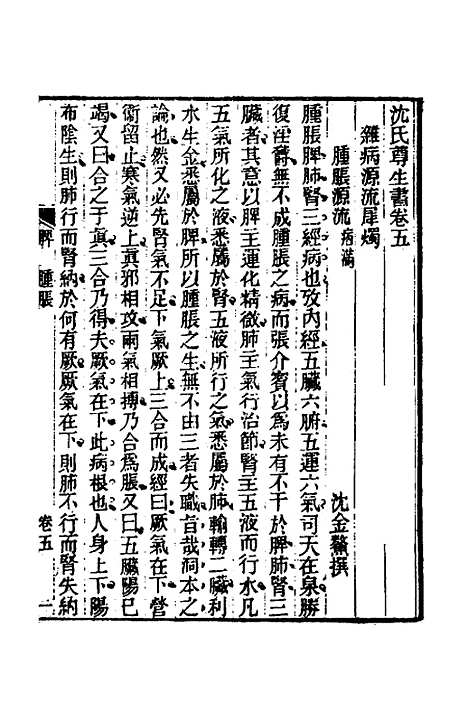 沈氏尊生書卷五
雜病源流犀燭
腫脹源流 痞滿 沈金鰲撰
腫脹脾肺腎三經病也攷內經五臟六腑五運六氣司天在泉勝
復淫鬱無不成腫脹之病而張介賓以爲未有不干於脾肺腎三
臟者其意以脾主運化精微肺主氣行治節腎主五液而行水凡
五氣所化之液悉屬於腎五液所行之氣悉屬於肺輸轉二臟利
水生金悉屬於脾所以腫脹之生無不由三者失職旨哉洞本之
論也然又必先腎氣不足下氣厥上三合而成經曰厥氣在下營
衞留止寒氣逆上眞邪相攻兩氣相搏乃合爲脹又曰五臟陽已
竭又曰合之于眞三合乃得夫厥氣在下此病根也人身上下陽
布陰生則肺行而腎納於何有厥厥氣在下則肺不行而腎失納
脾 腫脹 卷五 一